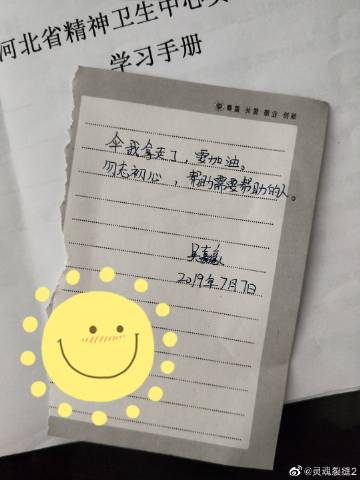 河北省精神卫生中心实
学习手册
尊重 关爱 敬业 创新
伞我拿走了，要加油。
勿忘初心，帮助需要帮助的人。
2019年7月7日
@灵魂裂缝2